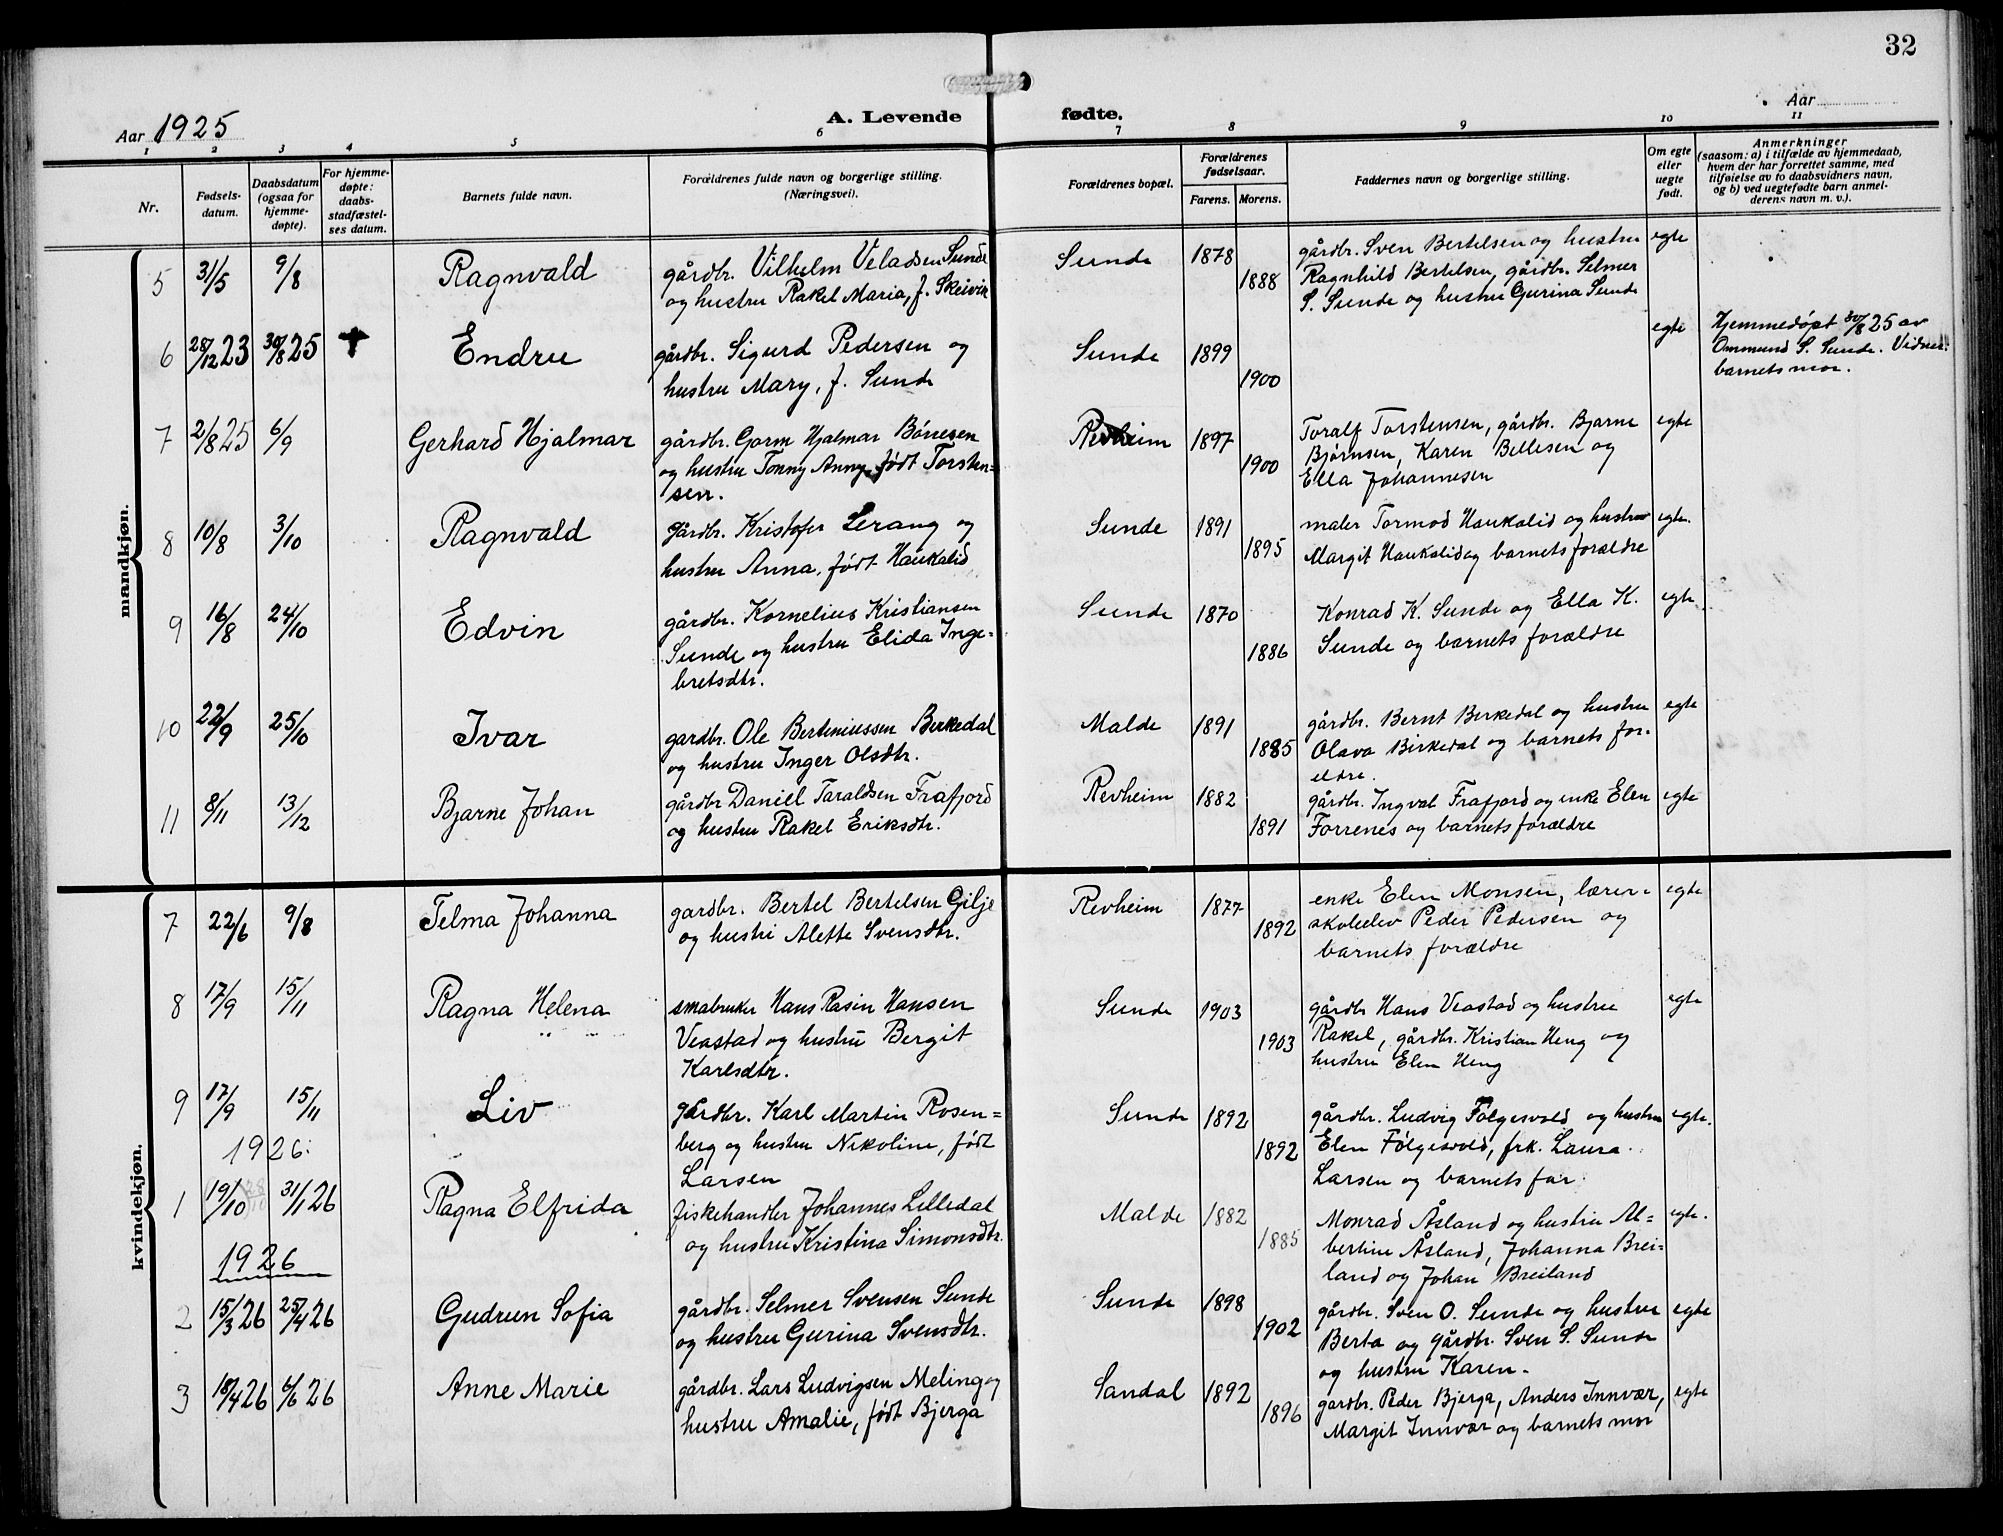 32
Aar 1925
A. Levende fødte.
Aar
1 2 3 4 5 6 7 8 9 10 11
Nr.
Fødsels-
datum.
Daabsdatum
(ogsaa for
hjemme-
døpte).
For hjemme-
døpte:
daabs-
stadfæstel-
ses datum.
Barnets fulde navn.
Forældrenes fulde navn og borgerlige stilling.
(Næringsvei).
Forældrenes bopæl.
Forældrenes
fødselsaar.
Farens. Morens.
Faddernes navn og borgerlige stilling.
Om egte
eller
uegte
født.
Anmerkninger
(saasom: a) i tilfælde av hjemmedaab,
hvem der har forrettet samme, med
tilføielse av to daabsvidners navn,
og b) ved uegtefødte barn anmel-
derens navn m. v.).
mandkjøn.
5 31/5 9/8 Ragnvald
gårdbr. Vilhelm Veladsen Sunde
og hustru Rakel Maria, f. Skeivik
Sunde 1878 1888
gårdbr. Sven Bertelsen og hustru
Ragnhild Bertelsen, gårdbr. Selmer
S. Sunde og hustru Gurina Sunde
egte
6 28/12 23 30/8 25 Endru
gårdbr. Sigurd Pedersen og
hustru Mary, f. Sunde
Sunde 1899 1900
egte
Hjemmedøpt 30/8 25 av
Ommund S. Sunde. Vidne:
barnets mor.
7 2/8 25 6/9 Gerhard Hjalmar
gårdbr. Gorm Hjalmar Bönesen
og hustru Tonny Anny, født Torsten-
sen.
Revheim 1897 1900
Toralf Torstensen, gårdbr. Bjarne
Bjørnsen, Karen Bellesen og
Ella Johannesen
egte
8 10/8 3/10 Ragnvald
gårdbr. Kristofer Lerang og
hustru Anna, født Haukalid
Sunde 1891 1895
maler Tormod Haukalid og hustru
Margit Haukalid og barnets forældre
egte.
9 16/8 24/10 Edvin
gårdbr. Kornelius Kristiansen
Sunde og hustru Elida Inge-
bretsdtr.
Sunde 1870 1886
Konrad K. Sunde og Ella K.
Sunde og barnets forældre
egte
10 22/9 25/10 Ivar
gardbr. Ole Berteniussen Berkedal
og hustru Inger Olsdtr.
Malde 1891 1885
gårdbr. Bernt Birkedal og hustru
Olava Birkedal og barnets for-
eldre.
egte
11 8/11 13/12 Bjarne Johan
gårdbr Daniel Taraldsen Frafjord
og hustru Rakel Eriksdtr.
Revheim 1882 1891
gårdbr. Ingval Frafjord og enke Elen
Forrenes og barnets forældre
egte
kvindekjøn.
7 22/6 9/8 Telma Johanna
gardbr. Bertel Bertelsen Gilje
og hustru Alette Svensdtr.
Revheim 1877 1892
enke Elen Monsen, lærer-
skoleelev Peder Pedersen og
barnets forældre
egte
8 17/9 15/11 Ragna Helena
smabruker Hans Rasin Hansen
Veastad og hustru Bergit
Karlsdtr.
Sunde 1903 1903
gårdbr Hans Veastad og hustru
Rakel, gårdbr. Kristian Heng og
hustru Elen Heng
egte
9 17/9 15/11 Liv
gårdbr. Karl Martin Rosen=
berg og hustru Nikoline, født
Larsen
Sunde 1892 1892
gårdbr. Ludvig Følgesvold og hustru
Elen Følgesvold, frk. Laura
Larsen og barnets far.
egte.
1926:
1 19/10 28/10 31/1 26 Ragna Elfrida
fiskehandler Johannes Lilledal
og hustru Kristina Simonsdtr.
Malde 1882 1885
Monrad Åsland og hustru Al=
bertine Åsland, Johanna Brei=
land og Johan Breiland
egte.
1926
2 15/3 26 25/4 26 Gudrun Sofia
gårdbr. Selmer Svensen Sunde
og hustru Gurina Svensdtr.
Sunde 1898 1902
gårdbr. Sven O. Sunde og hustru
Berta og gårdbr. Sven S. Sunde
og hustru Karen.
egte
3 18/4 26 6/6 26 Anne Marie
gårdbr. Lars Ludvigsen Meling og
hustru Amalie, født Bjerga
Sandal 1892 1896
gardbr. Peder Bjerga, Anders Innvær,
Margit Innvær og barnets mor
egte